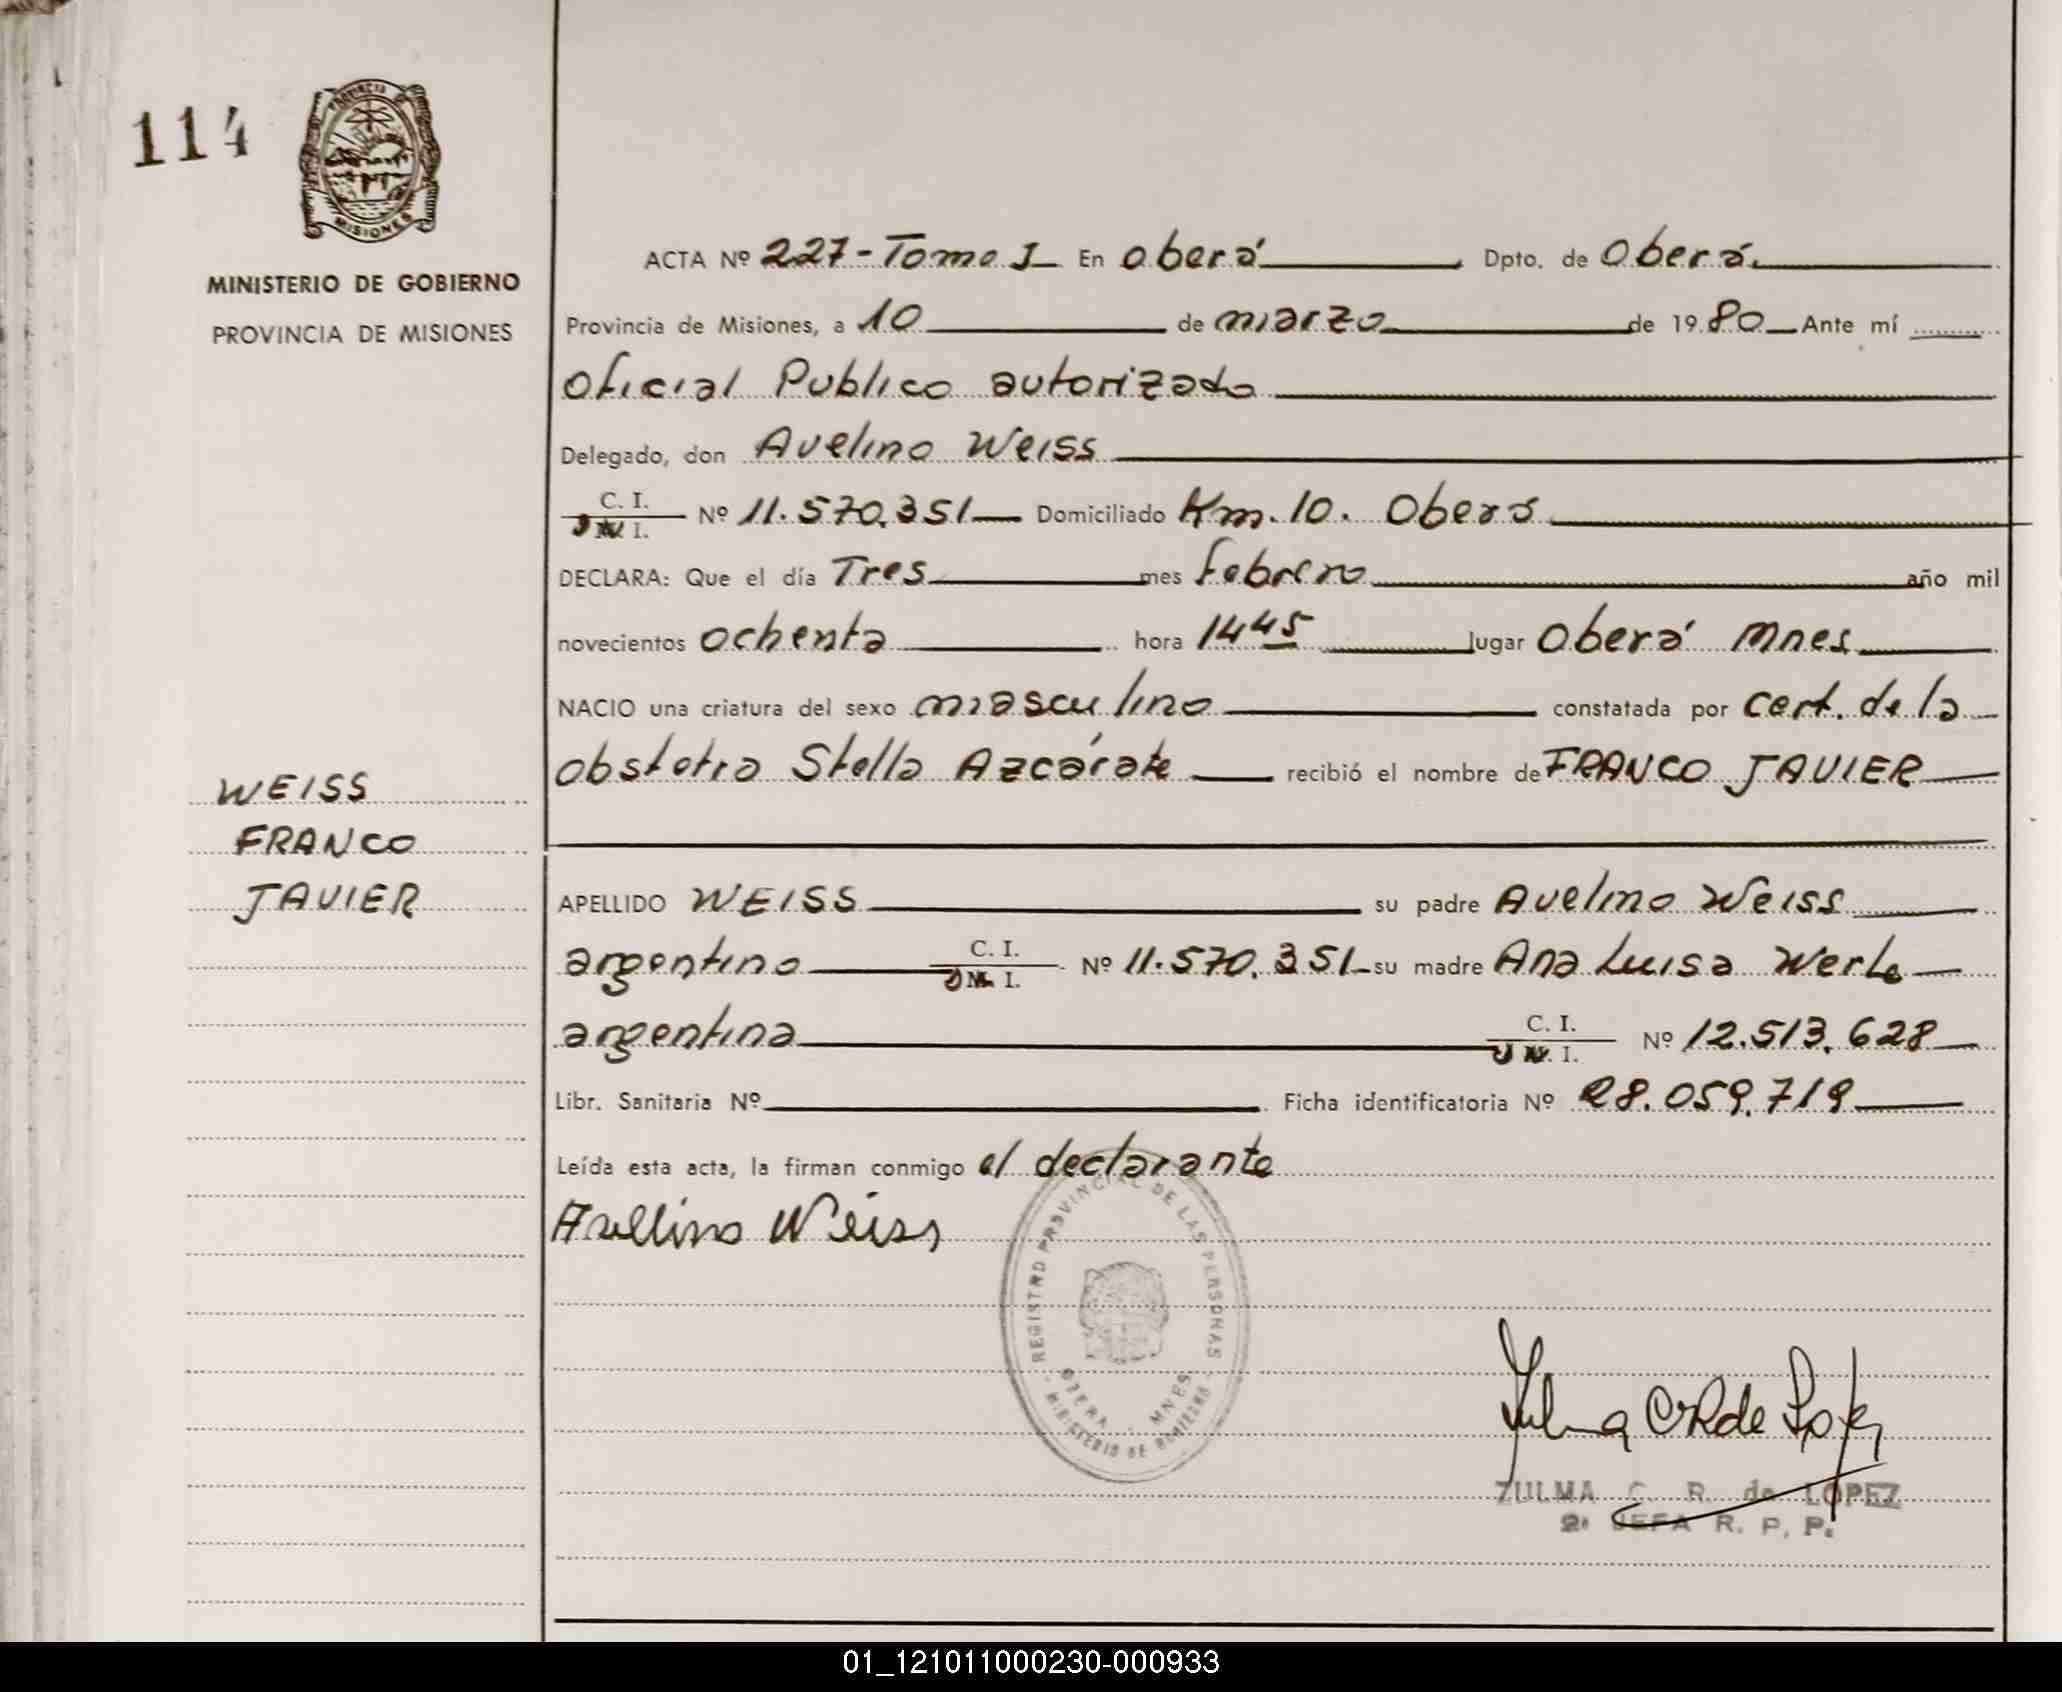 114
PROVINCIA DE
MISIONES
MINISTERIO DE GOBIERNO
PROVINCIA DE MISIONES
ACTA Nº 227-Tomo I En Oberá Dpto. de Oberá
Provincia de Misiones, a 10 de marzo de 1980 Ante mí
Oficial Publico autorizado
Delegado, don Avelino Weiss
C. I.
D.N.I. Nº 11.570.351 Domiciliado Km. 10. Oberá
DECLARA: Que el día Tres mes febrero año mil
novecientos ochenta hora 1445 lugar Oberá Mnes
NACIO una criatura del sexo masculino constatada por cert. de la
obstetra Stella Azcárate recibió el nombre de FRANCO JAVIER
WEISS
FRANCO
JAVIER
APELLIDO WEISS su padre Avelino Weiss
argentino C. I. D.N.I. Nº 11.570.351 su madre Ana Luisa Werle
argentina C. I. D.N.I. Nº 12.513.628
Libr. Sanitaria Nº Ficha identificatoria Nº 28.059.719
Leída esta acta, la firman conmigo el declarante
Avellino Weiss
REGISTRO PROVINCIAL DE LAS PERSONAS
OBERA - MNES
MINISTERIO DE GOBIERNO
Zulma CR de Lopez
ZULMA C. R. de LOPEZ
2ª JEFA R. P. P.
01_121011000230-000933